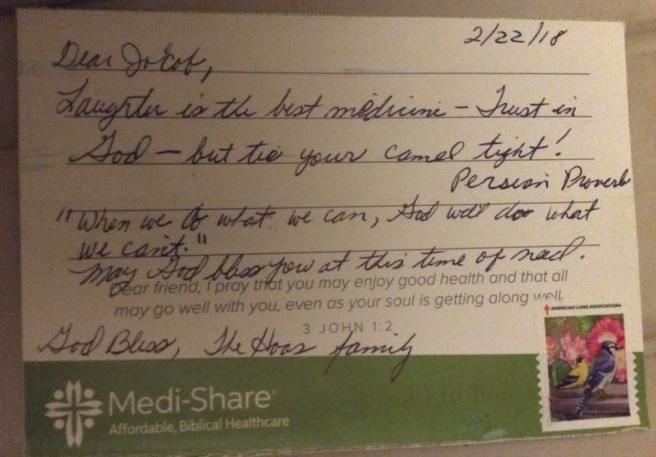 2/22/18
Dear Jacob,
Laughter is the best medicine - Trust in
God - but tie your camel tight!
Persian Proverb
"When we do what we can, God will do what
we can't."
May God bless you at this time of need.
Dear friend, I pray that you may enjoy good health and that all
may go well with you, even as your soul is getting along well.
3 JOHN 1:2
God Bless, The Haas family
AMERICAN LUNG ASSOCIATION
Medi-Share®
Affordable, Biblical Healthcare